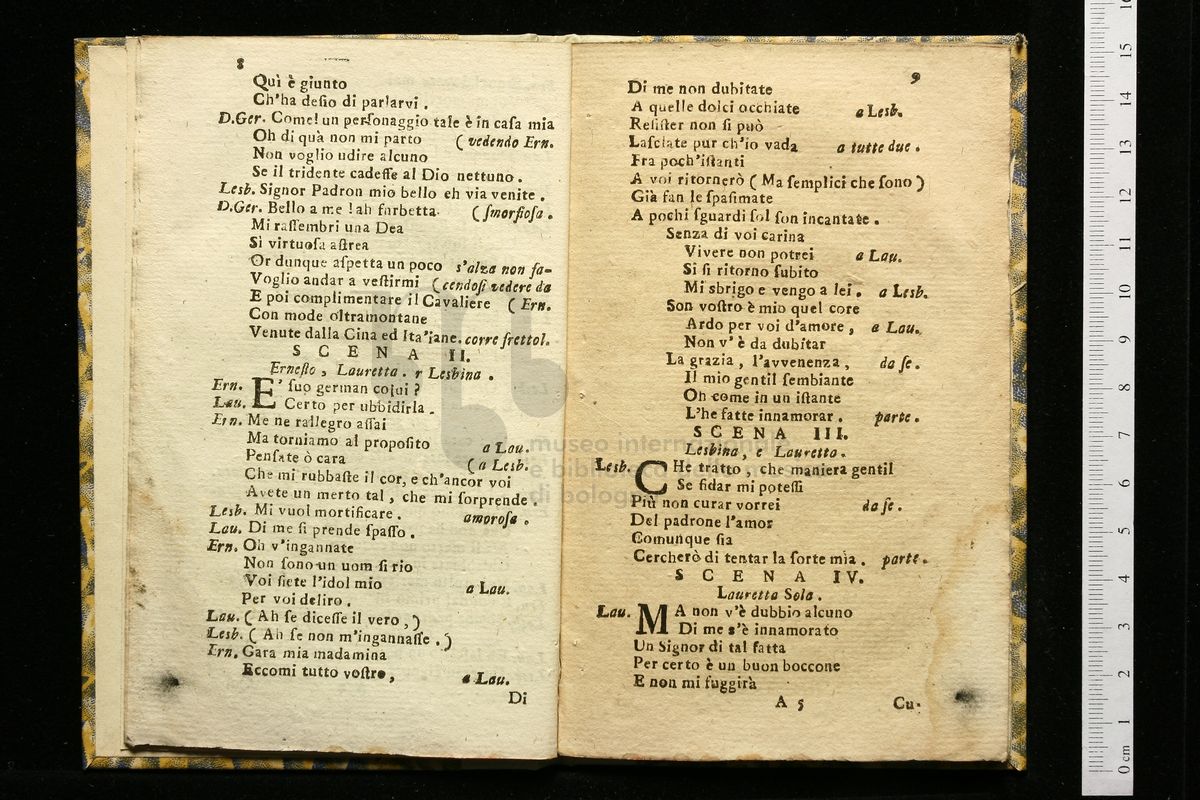 8
Quì è giunto
Ch'ha deſio di parlarvi .
D.Ger. Come! un perſonaggio tale è in caſa mia
Oh di quà non mi parto ( vedendo Ern.
Non voglio udire alcuno
Se il tridente cadeſſe al Dio nettuno .
Lesb. Signor Padron mio bello eh via venite .
D.Ger. Bello a me ! ah furbetta ( ſmorfioſa .
Mi raſſembri una Dea
Si virtuoſa aſtrea
Or dunque aſpetta un poco s'alza non fa-
Voglio andar a veſtirmi ( cendoſi vedere da
E poi complimentare il Cavaliere ( Ern.
Con mode oltramontane
Venute dalla Cina ed Ita'iane. corre frettol.
SCENA II.
Erneſto , Lauretta. r Lesbina .
Ern. E' ſuo german coſui ?
Lau. Certo per ubbidirla .
Ern. Me ne rallegro aſſai
Ma torniamo al propoſito a Lau.
Penſate ò cara ( a Lesb.
Che mi rubbaſte il cor, e ch'ancor voi
Avete un merto tal , che mi ſorprende .
Lesb. Mi vuol mortificare . amoroſa .
Lau. Di me ſi prende ſpaſſo .
Ern. Oh v'ingannate
Non ſono un uom ſi rio
Voi ſiete l'idol mio a Lau.
Per voi deliro .
Lau. ( Ah ſe diceſſe il vero , )
Lesb. ( Ah ſe non m'ingannaſſe . )
Ern. Gara mia madamina
Eccomi tutto voſtro , a Lau.
Di
9
Di me non dubitate
A quelle dolci occhiate a Lesb.
Reſiſter non ſi può
Laſciate pur ch'io vada a tutte due .
Fra poch'iſtanti
A voi ritornerò ( Ma ſemplici che ſono )
Già fan le ſpaſimate
A pochi ſguardi ſol ſon incantate .
Senza di voi carina
Vivere non potrei a Lau.
Si ſi ritorno ſubito
Mi sbrigo e vengo a lei . a Lesb.
Son voſtro è mio quel core
Ardo per voi d'amore , a Lau.
Non v' è da dubitar
La grazia , l'avvenenza , da ſe .
Il mio gentil ſembiante
Oh come in un iſtante
L'he fatte innamorar . parte .
SCENA III.
Lesbina, e Lauretta .
Lesb. CHe tratto , che maniera gentil
Se fidar mi poteſſi
Più non curar vorrei da ſe .
Del padrone l'amor
Comunque ſia
Cercherò di tentar la ſorte mia . parte .
SCENA IV.
Lauretta Sola .
Lau. MA non v'è dubbio alcuno
Di me s'è innamorato
Un Signor di tal fatta
Per certo è un buon boccone
E non mi fuggirà
A 5 Cu-
museo internazionale
e biblioteca della musica
di bologna
0 cm 1 2 3 4 5 6 7 8 9 10 11 12 13 14 15 16